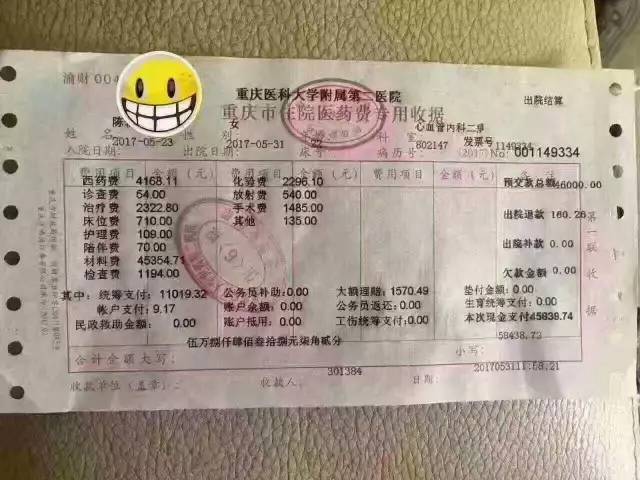 渝财 004
重庆医科大学附属第二医院
出院结算
重庆市住院医药费专用收据
陈 女 心血管内科二
姓名 性别 科室 发票号 1149334
2017-05-23 2017-05-31 22 802147
入院日期 出院日期 床号 病历号 (2017)No: 001149334
费用项目 金额(元) 费用项目 金额(元) 费用项目 金额(元) 备注
西药费 4168.11 化验费 2296.10 预交款总额46000.00
诊查费 54.00 放射费 540.00
治疗费 2322.80 手术费 1485.00 出院退款 160.26
床位费 710.00 其他 135.00
护理费 109.00 出院补款 0.00
陪伴费 70.00
材料费 45354.71 欠款金额 0.00
检查费 1194.00
其中：统筹支付：11019.32 公务员补助:0.00 大额理赔：1570.49 垫付金额:0.00
帐户支付：9.17 账户余额：0.00 公务员退还：0.00 生育统筹支付：0.00
民政救助金额：0.00 账户抵用：0.00 工伤统筹支付：0.00 本次现金支付:45838.74
伍万捌仟肆佰叁拾捌元柒角贰分 58438.72
合计金额大写： 小写：
301384 2017053111:58:21
收款单位(盖章)： 收款人： 日期：
第一联 收据